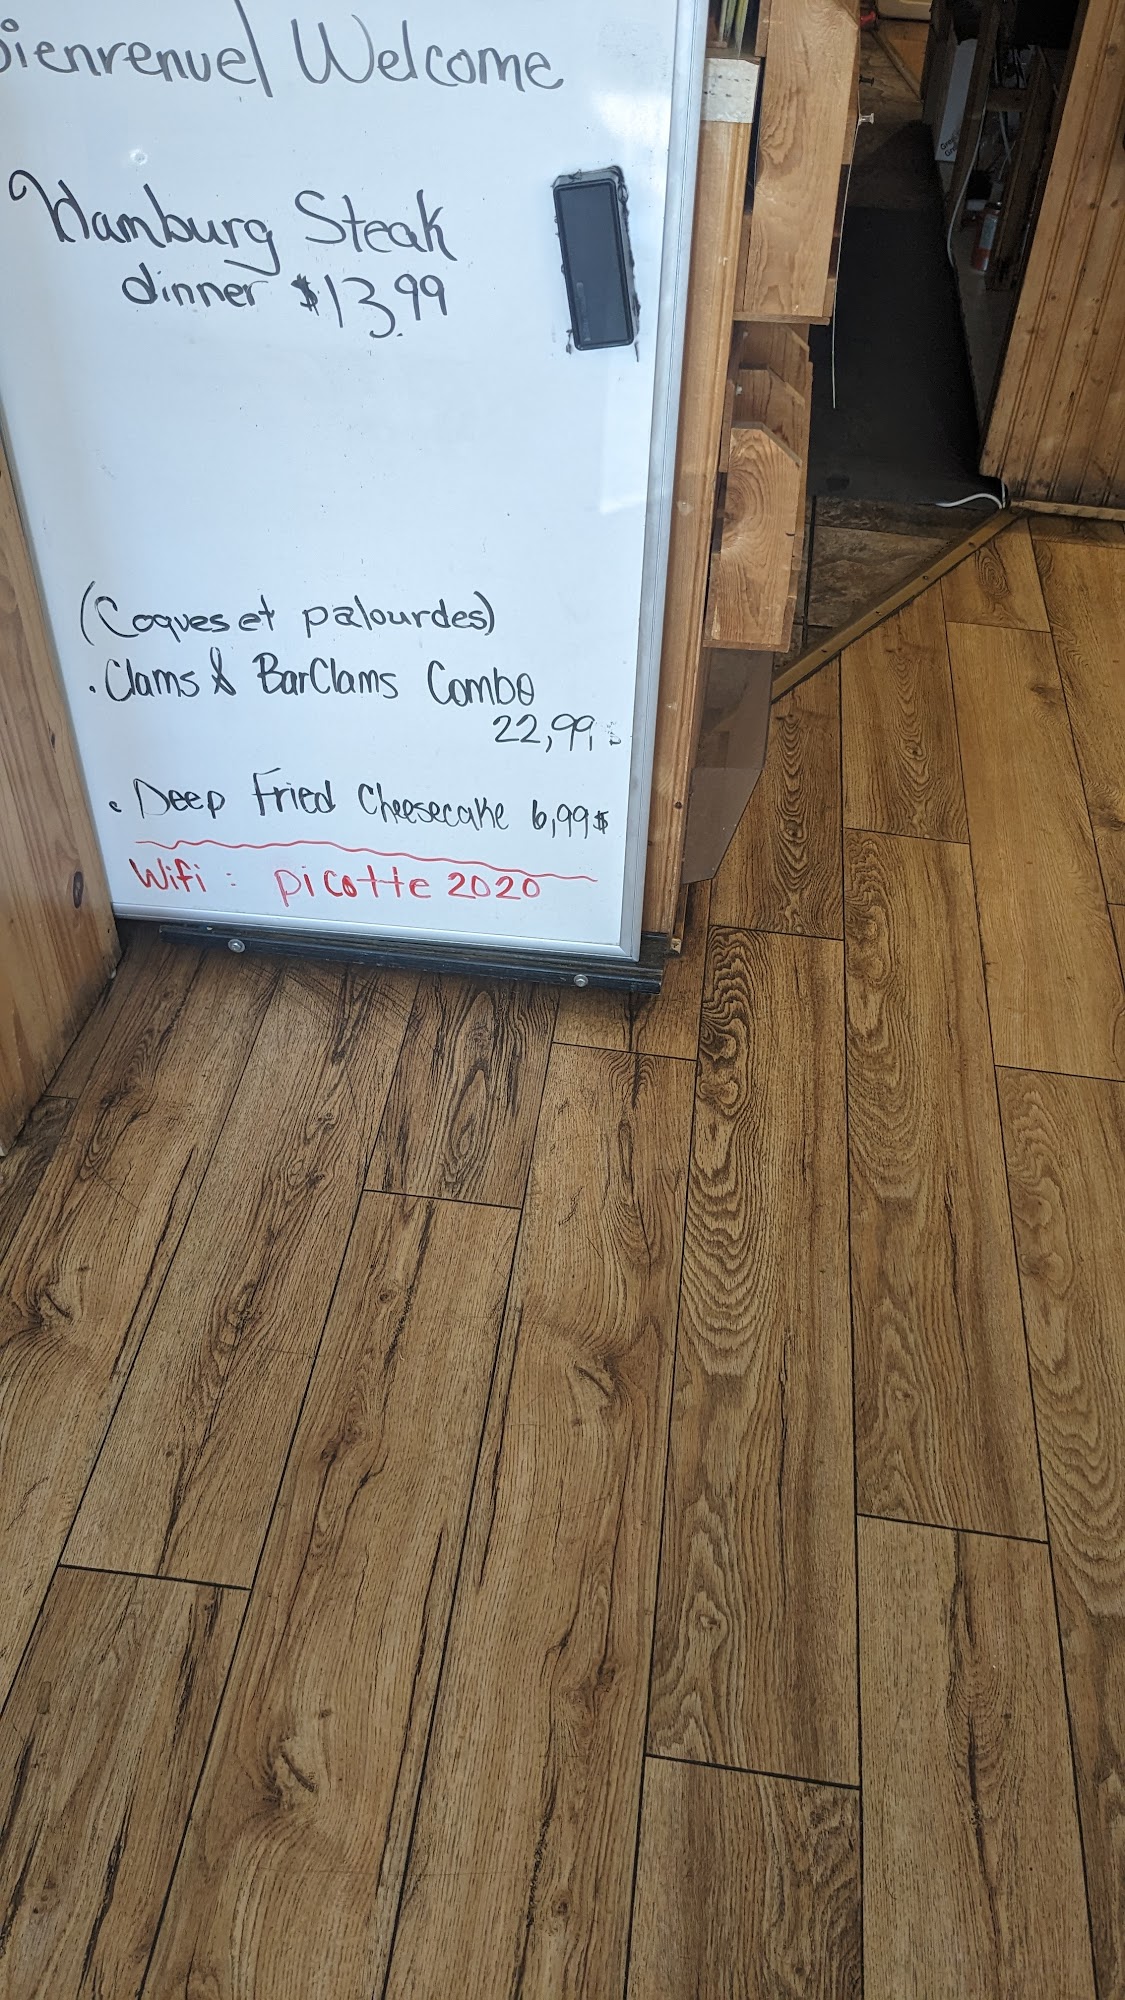 Bienvenue/ Welcome
Hamburg Steak
dinner $13.99
(Coques et palourdes)
. Clams & BarClams Combo
22,99 $
. Deep Fried Cheesecake 6,99$
Wifi : picotte 2020